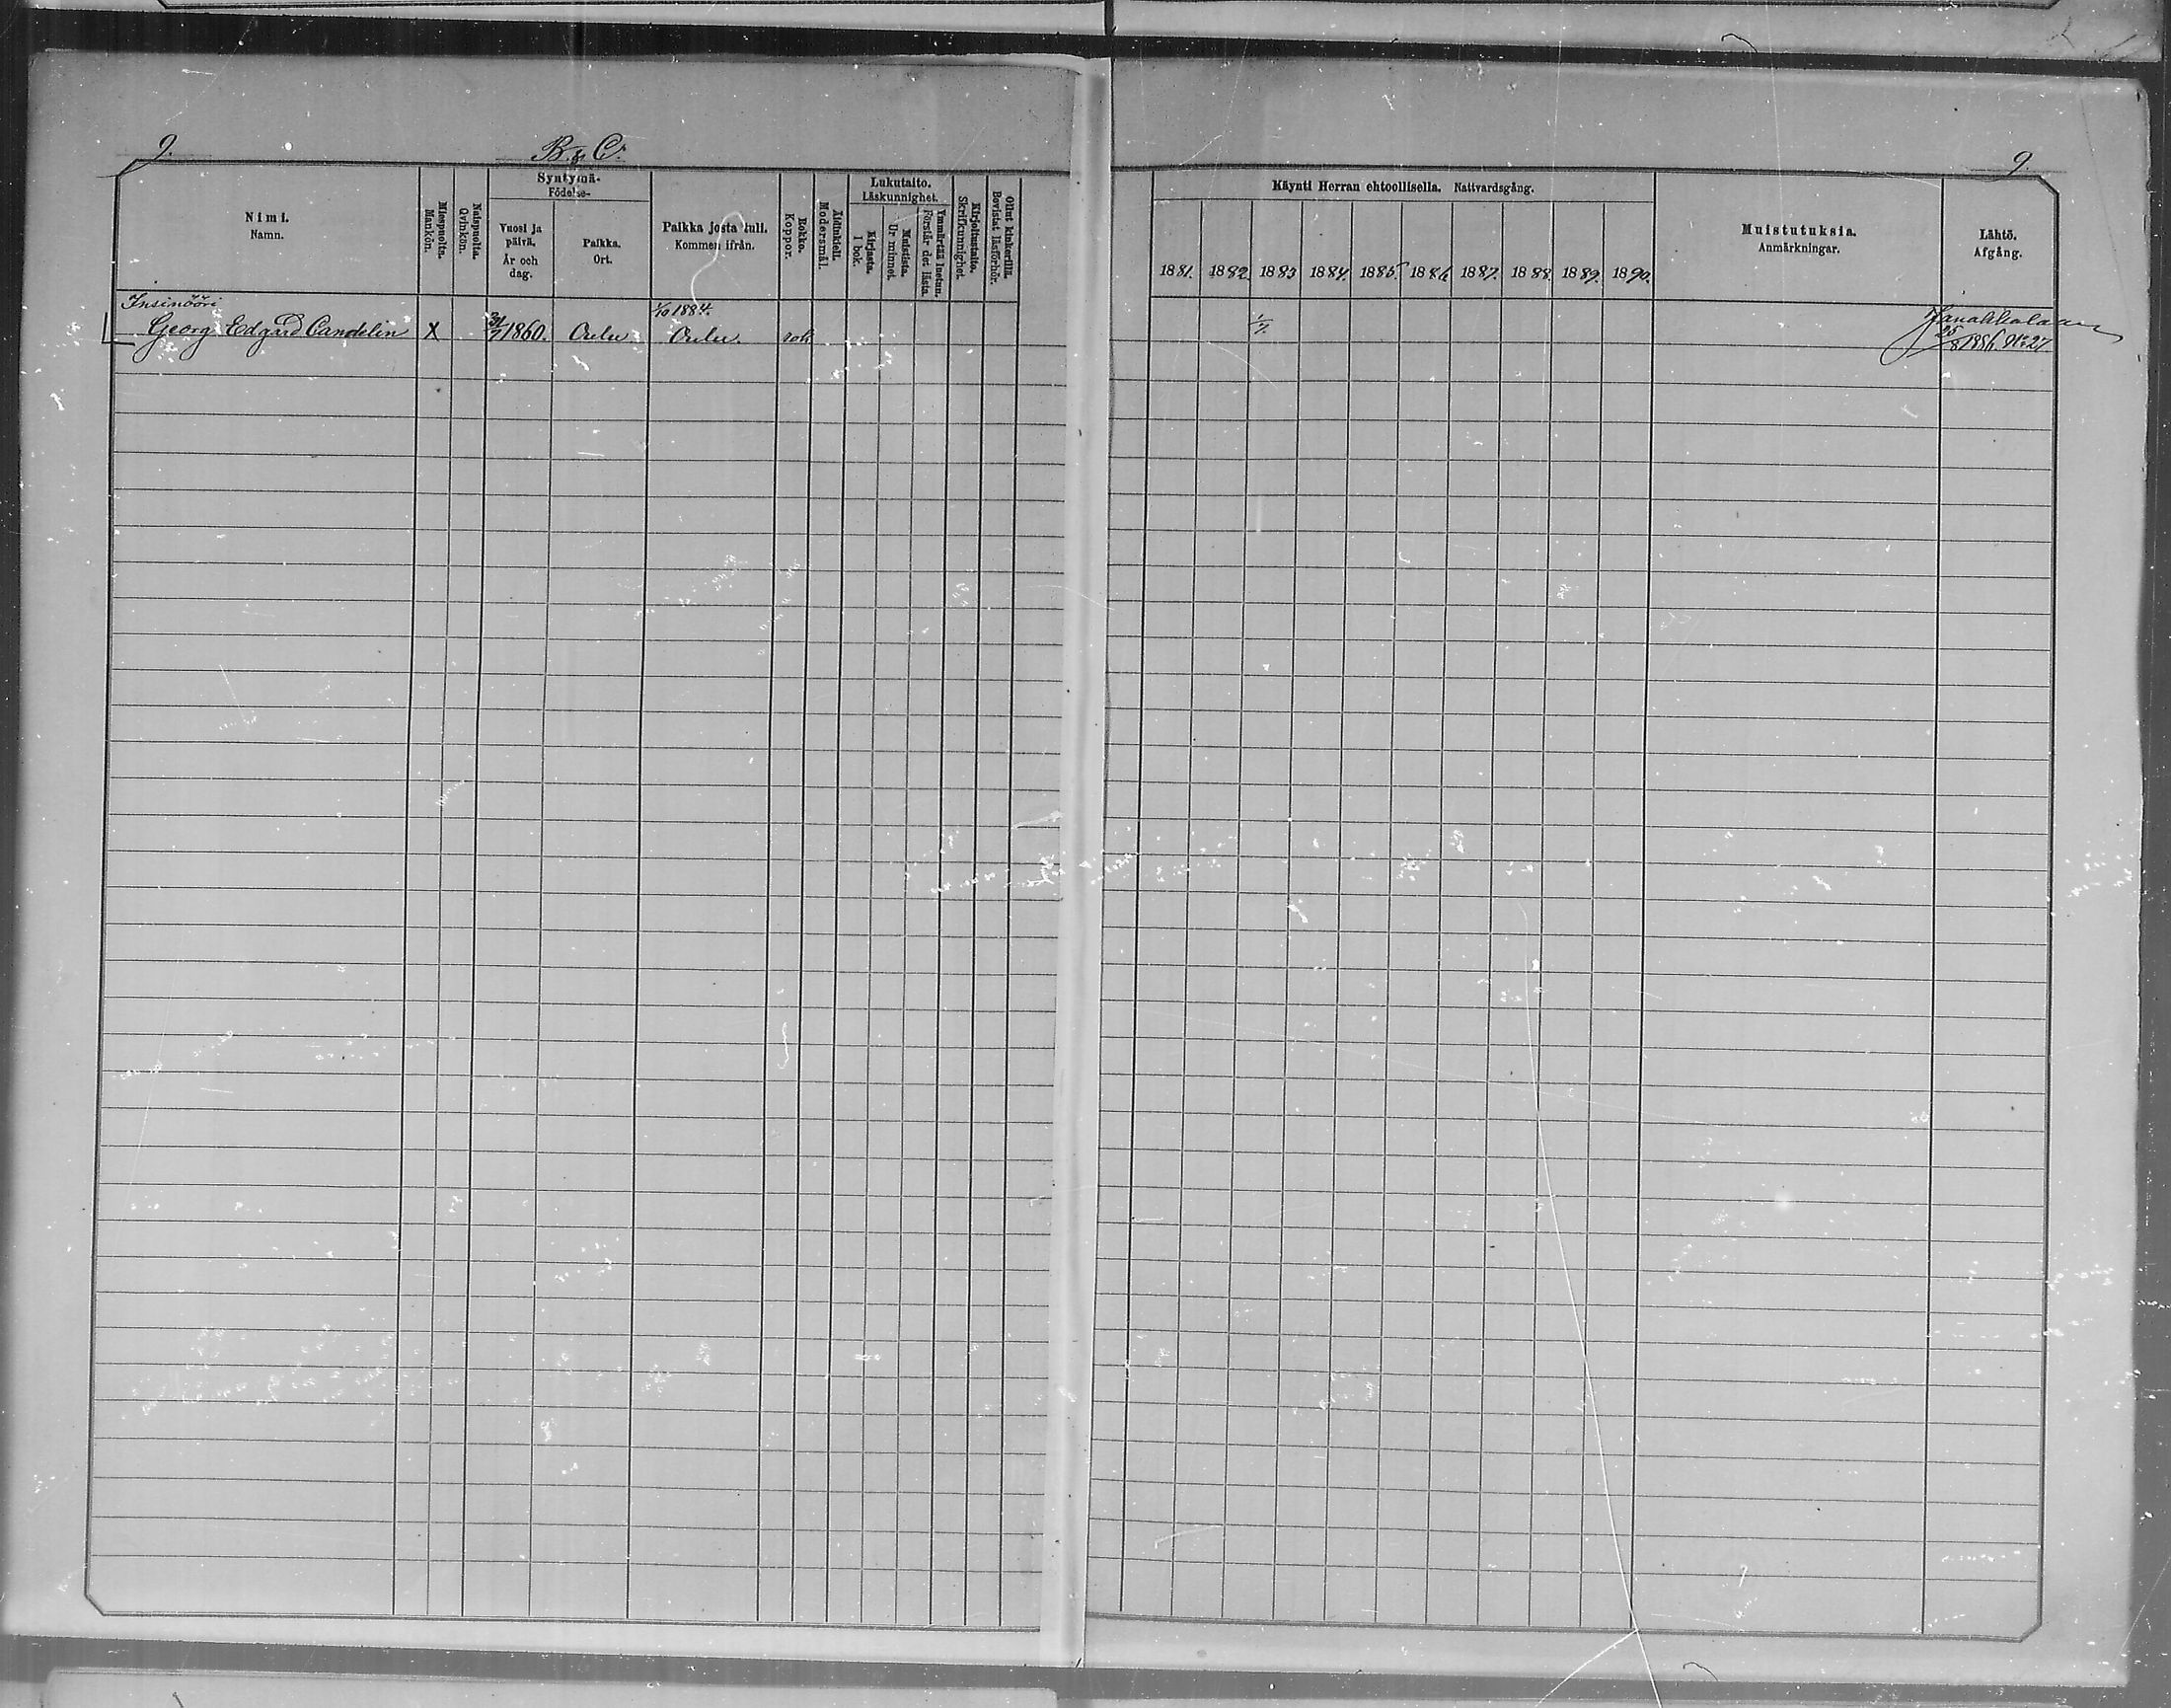 9.
B. & C.
9.
Nimi.
Namn.
Miespuolta.
Mankön.
Naispuolta.
Qvinkön.
Syntymä-
Födelse-
Vuosi ja päivä.
År och dag.
Paikka.
Ort.
Paikka josta tuli.
Kommen ifrån.
Rokko.
Koppor.
Äidinkieli.
Modersmål.
Lukutaito.
Läskunnighet.
Kirjasta.
I bok.
Muistista.
Ur minnet.
Ymmärtää luetun.
Förstår det lästa.
Kirjoitustaito.
Skrifkunnighet.
Ollut kinkerillä.
Bevistat läsförhör.
Käynti Herran ehtoollisella. Nattvardsgång.
1881. 1882. 1883 1884. 1885. 1886. 1887. 1888. 1889. 1890.
Muistutuksia.
Anmärkningar.
Lähtö.
Afgång.
Insinööri 1/10 1884. Janakkalaan
Georg Edgard Candelin X 31/7 1860. Oulu Oulu. rok 1/7. 25/8 1886. No 27.